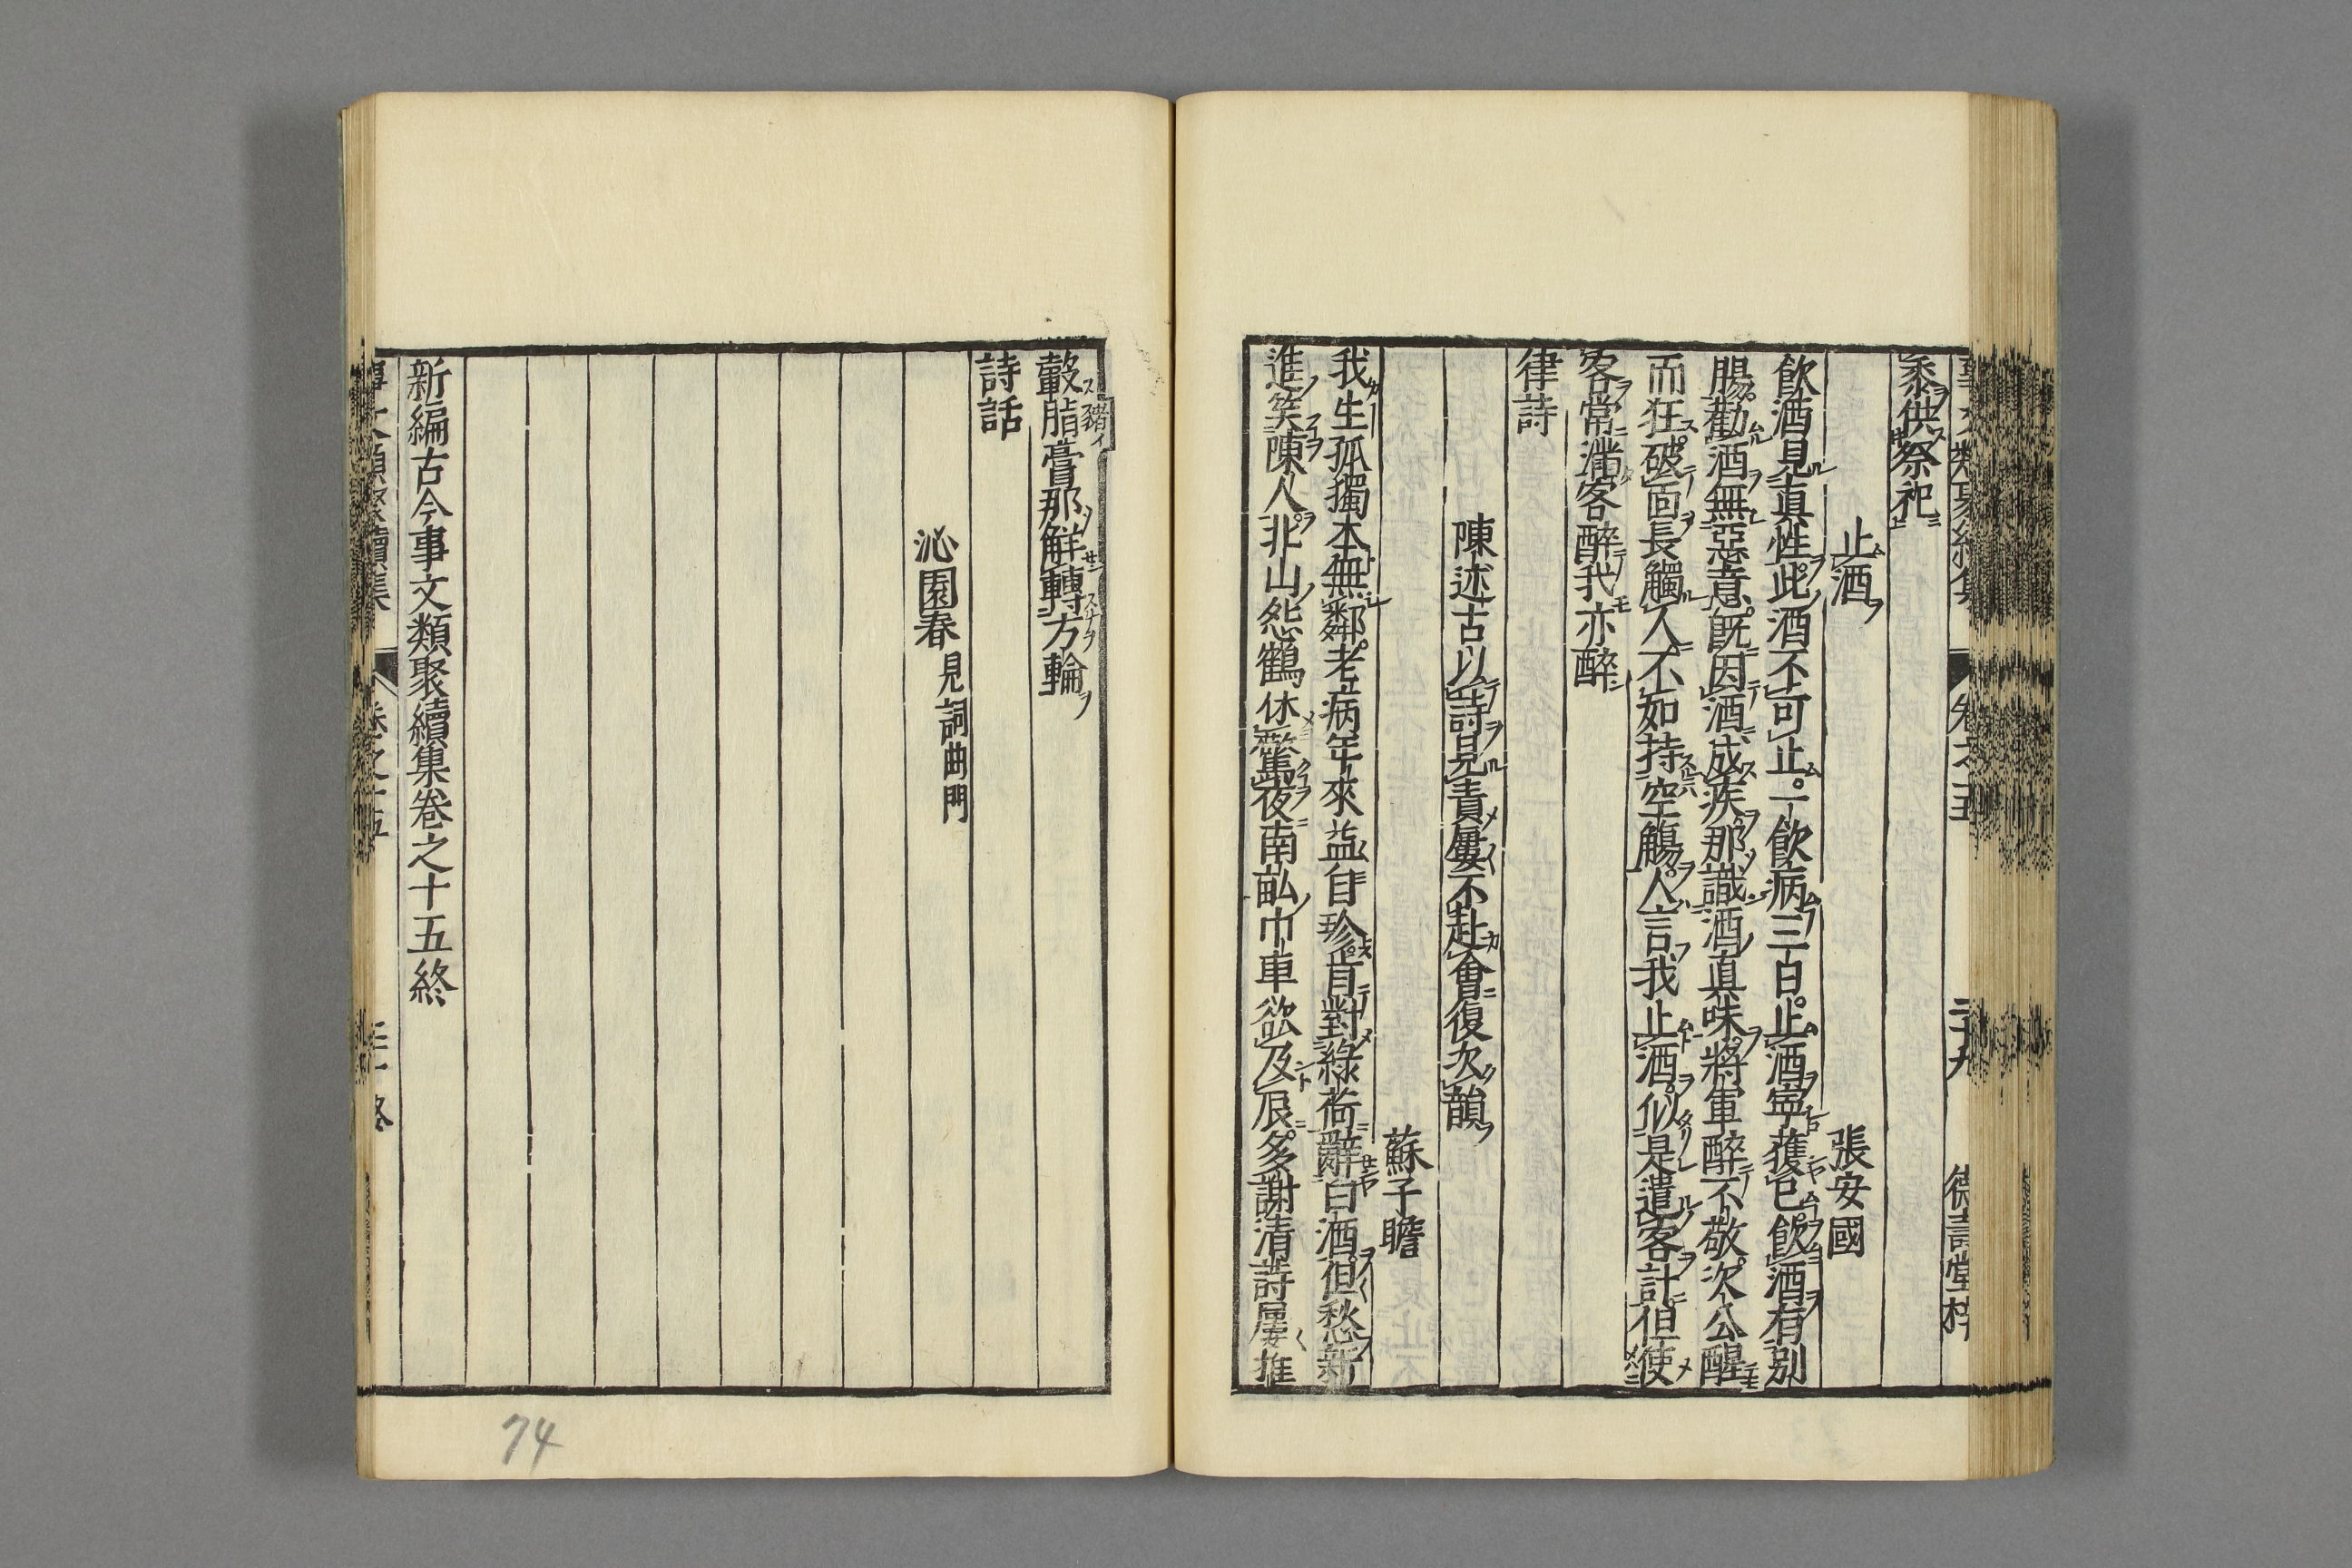 黍供祭祀
止酒　張安國
飲酒見眞性此酒不可止一飲病三日止酒寧獲已飮酒有別
腸勸酒無惡意旣因酒成疾那識酒眞味將軍醉不敬次公醒
而狂破面長觸人不如持空觴人言我止酒似是遣客計但使
客常滿客醉我亦醉
律詩
陳述古以詩見責屢不赴會復次韻
蘇子瞻
我生孤獨本無鄰老病年來益自珍肯對綠荷辭白酒但愁新
進笑陳人北山怨鶴休驚夜南畝巾車欲及辰多謝清詩屢推
轂脂膏那解轉方輪
豬イ
詩話
沁園春　見詞曲門
新編古今事文類聚續集卷之十五終
卷之十五
二十九
德壽堂梓
74